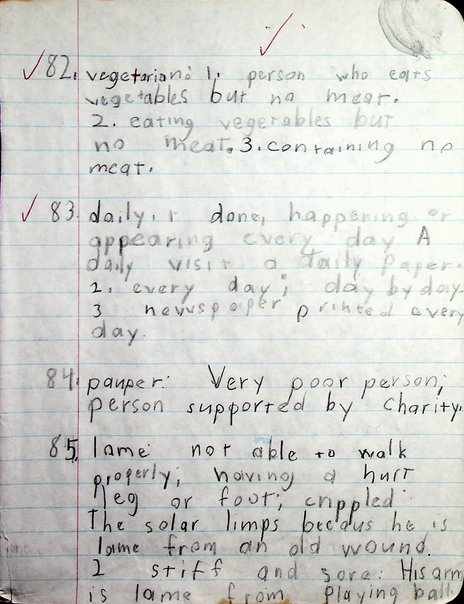 82. vegetarian: 1. person who eats
vegetables but no meat.
2. eating vegetables but
no meat. 3. containing no
meat.
83. daily. 1 done, happening or
appearing every day. A
daily visit a daily paper.
2. every day; day by day.
3 newspaper printed every
day.
84. pauper: Very poor person;
person supported by charity.
85. lame: not able to walk
properly; having a hurt
leg or foot; crippled:
The solar limps becaus he is
lame from an old wound.
2 stiff and sore: His arm
is lame from playing ball